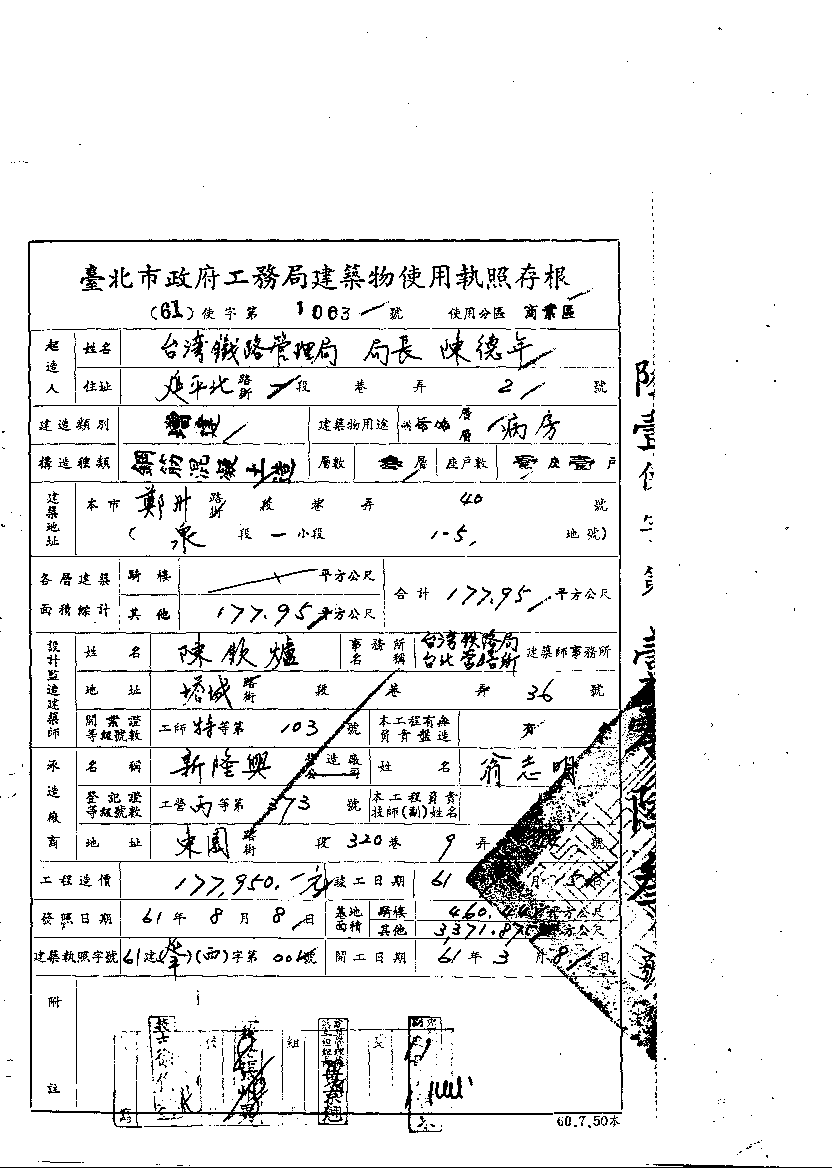 臺北市政府工務局建築物使用執照存根
(61)使字第 1003 號 使用分區 商業區
起造人 姓名 台湾鐵路管理局 局長 陳德年
住址 延平北路街一段 巷 弄 2 號
建造類別 增建 建築物用途 層層 病房
構造種類 鋼筋混凝土造 層數 層 座戶數 壹座壹戶
建築地址 本市 鄭州路街 段 巷 弄 40 號
( 泉 段 一小段 1-5. 地號)
各層建築面積綜計 騎樓 平方公尺 合計 177.95 平方公尺
其他 177.95 平方公尺
設計監造建築師 姓名 陳欽爐 事務所名稱 台湾铁路局台北 建築師事務所
地址 塔城路街 段 巷 弄 36 號
開業證等級號數 工師特等第 103 號 本工程有無負責監造 有
承造廠商 名稱 新隆興 營造廠公司 姓名 翁志明
登記證等級號數 工營丙等第 373 號 本工程負責技師(副)姓名
地址 東園路街 段 320巷 9 弄 號
工程造價 177,950.-元 竣工日期 61 月 15 日
發照日期 61年 8 月 8 日 基地面積 騎樓 460. 平方公尺
其他 3,371.8 平方公尺
建築執照字號 61建( )(西)字第 001號 開工日期 61年 3 月 8 日
附註
組 長
60.7.50本